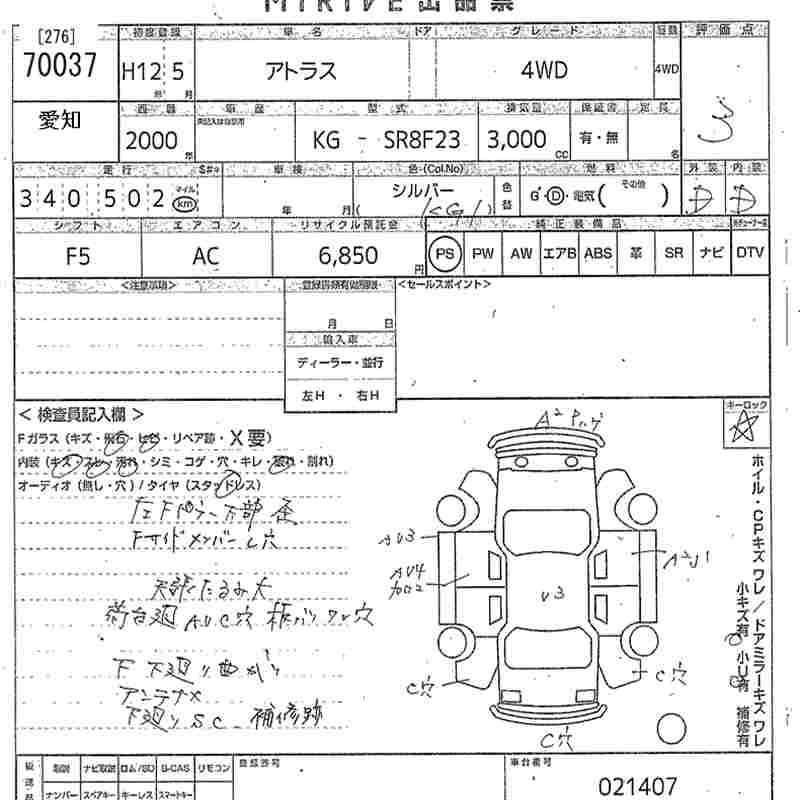 MIRIVE出品票
[276] 初度登録 車名 ドア グレード 駆動 評価点
70037 H12 5 アトラス 4WD 4WD 3
年 月
愛知 西暦 車歴 型式 排気量 保証書 定員
2000 KG - SR8F23 3,000 有・無
年 CC 名
走行 車検 色 (Col.No) 燃料 外装 内装
340502 マイル km 年 月 シルバー 色替 G・D・電気 ( その他 ) D D
( <G1 )
シフト エアコン リサイクル預託金 純正装備品
F5 AC 6,850 円 PS PW AW エアB ABS 革 SR ナビ DTV
<注意事項> <セールスポイント>
月 日
輸入車
ディーラー・並行
左H ・ 右H
< 検査員記入欄 > キーロック
Fガラス (キズ・飛石・ヒビ・リペア跡・X要)
内装 (キズ・スレ・汚れ・シミ・コゲ・穴・キレ・破れ・割れ)
オーディオ (無し・穴) / タイヤ (スタッドレス)
Fサイドメンバー C穴
天張たるみ大
荷台廻 AUC穴
下廻り曲がり
アンテナX
下廻りSC 補修跡
A2
AU3
AU4
U3
C穴
C穴
C穴
ホイル・CPキズワレ / ドアミラーキズワレ
小キズ有 小U有 補修有
取説 ナビ取説 ロム/SD B-CAS リモコン 登録番号 車台番号
ナンバー スペアキー キーレス スマートキー 021407